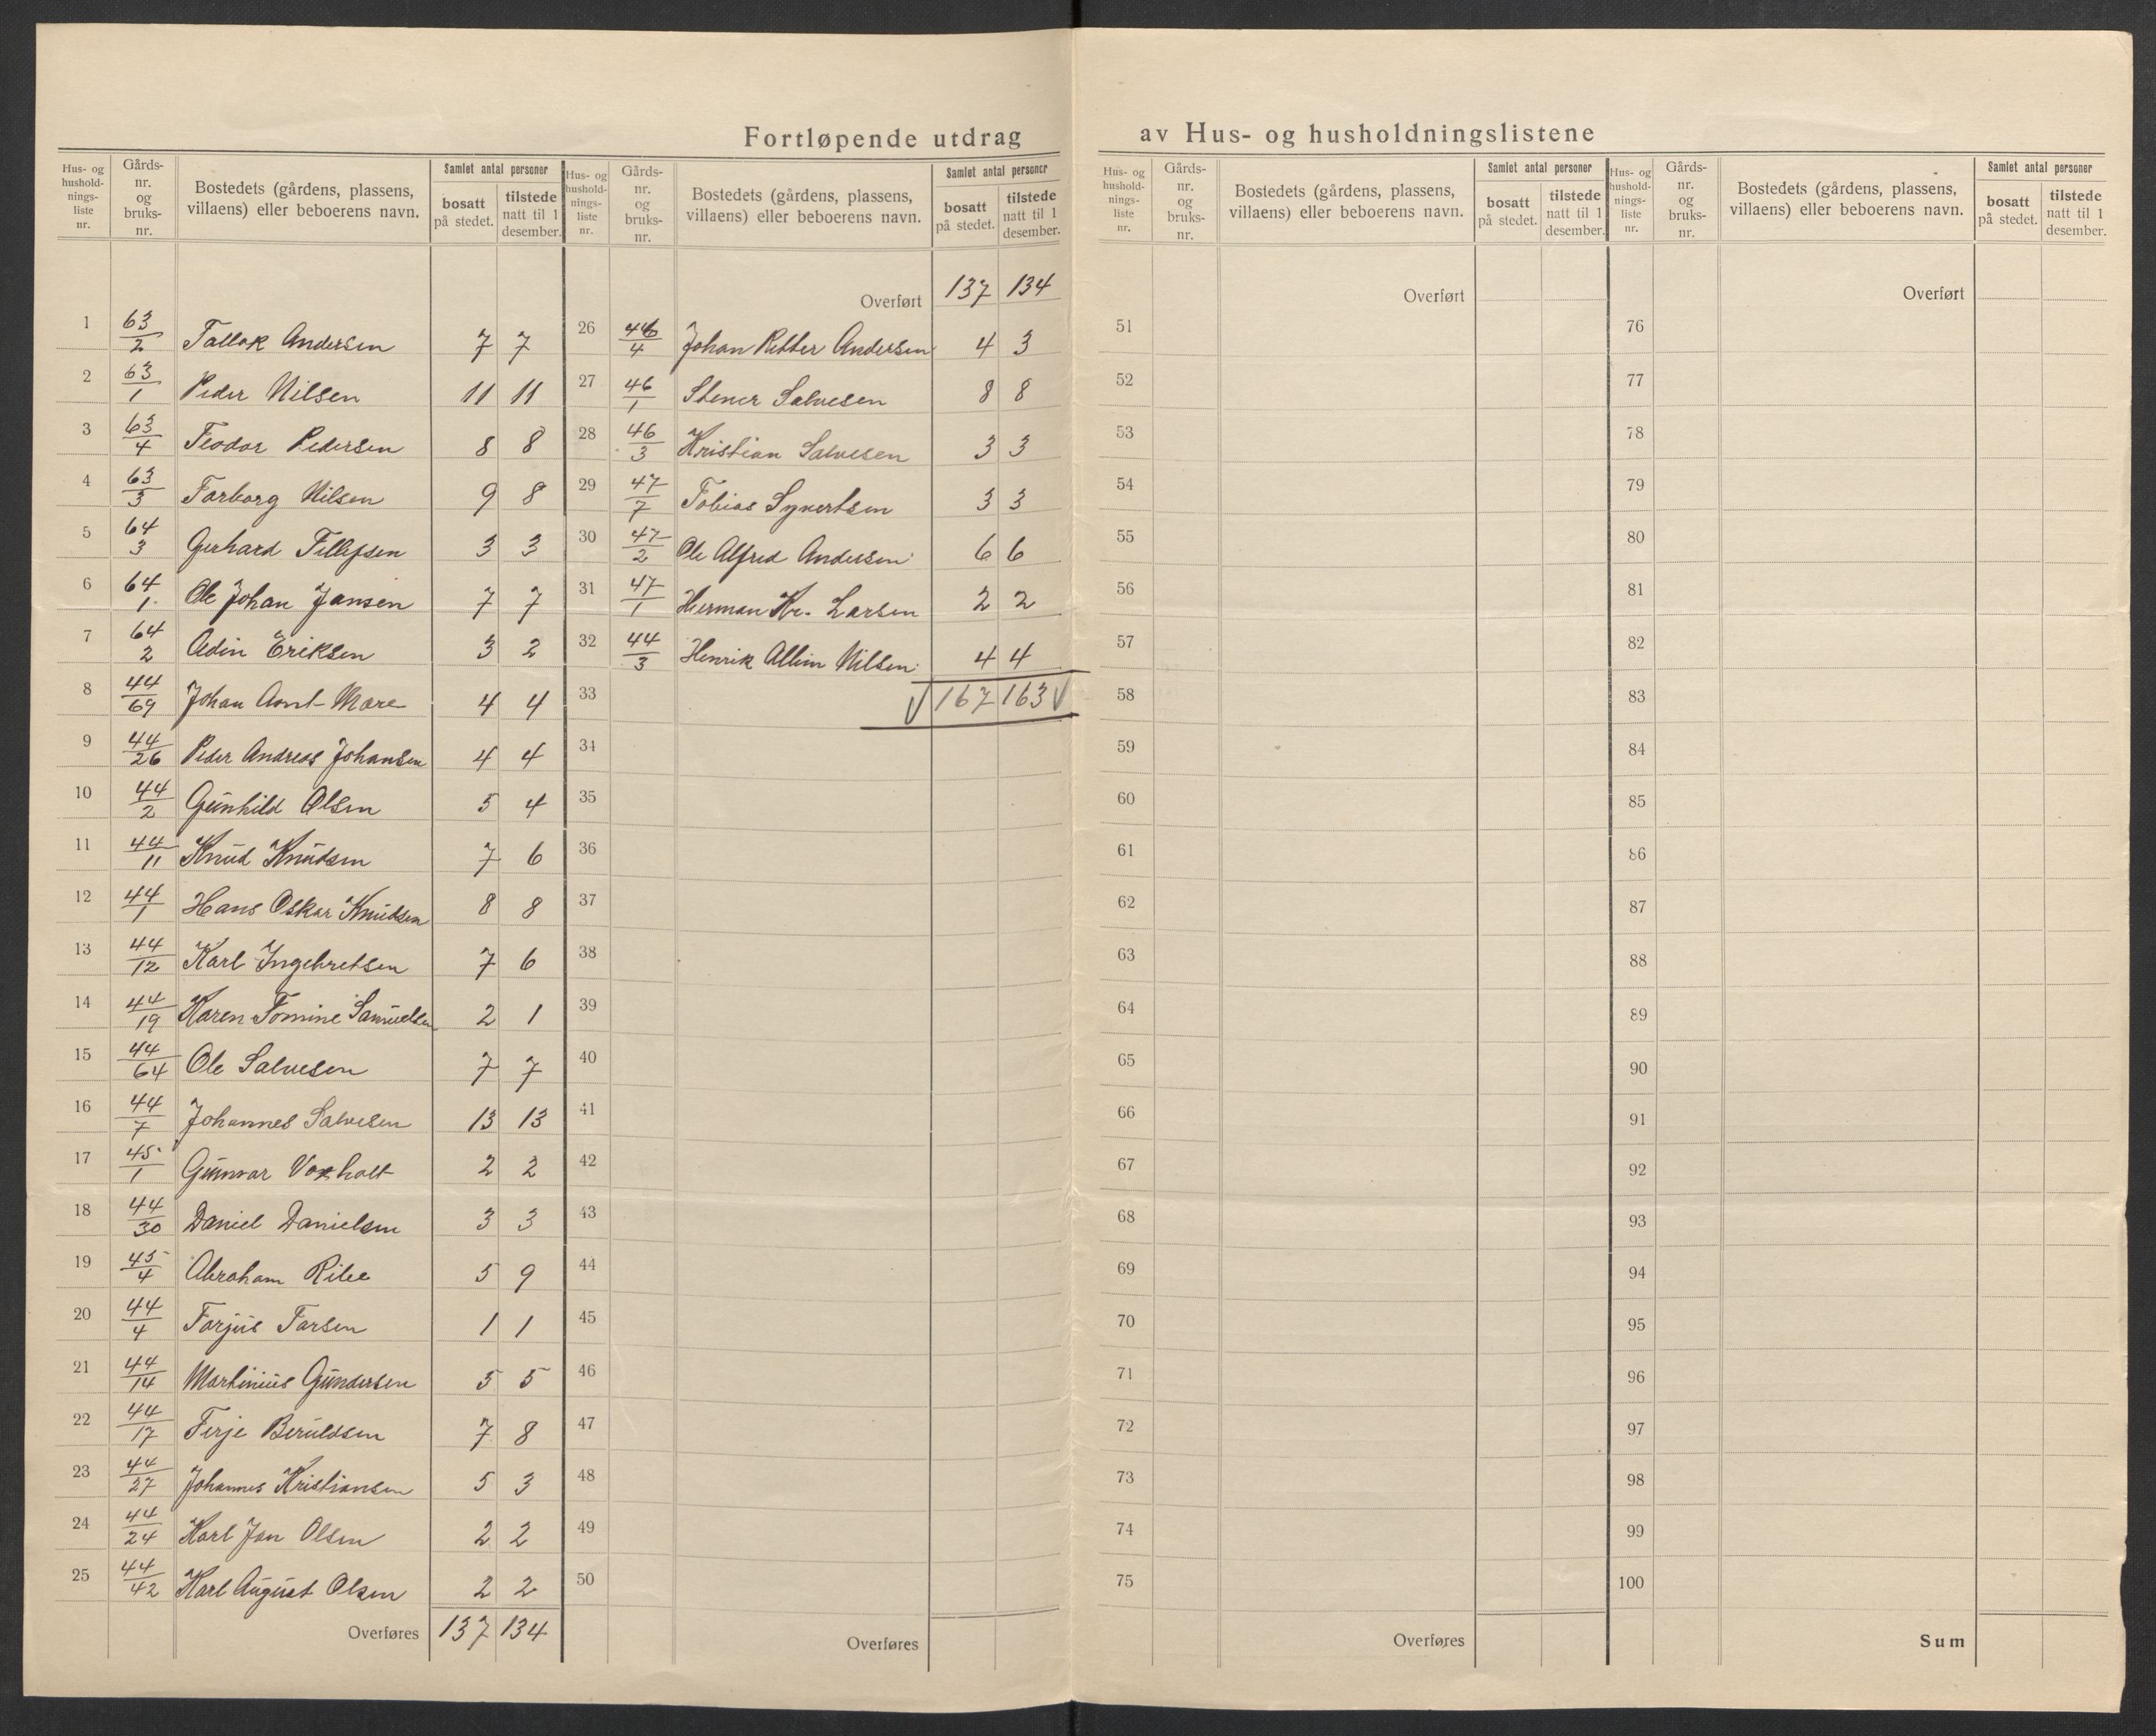 Fortløpende utdrag av Hus- og husholdningslistene
Hus- og husholdnings-liste nr. Gårds-nr. og bruks-nr. Bostedets (gårdens, plassens, villaens) eller beboerens navn. Samlet antal personer bosatt på stedet. tilstede natt til 1 desember.
1 63/2 Tallak Andersen 7 7
2 63/1 Peder Nilsen 11 11
3 63/4 Teodor Pedersen 8 8
4 63/3 Torborg Nilsen 9 8
5 64/3 Gerhard Tellefsen 3 3
6 64/1 Ole Johan Jansen 7 7
7 64/2 Adin Eriksen 3 2
8 44/69 Johan Arnt Mare 4 4
9 44/26 Peder Andreas Johansen 4 4
10 44/2 Gunhild Olsen 5 4
11 44/11 Knud Knudsen 7 6
12 44/1 Hans Oskar Knudsen 8 8
13 44/12 Karl Ingebretsen 7 6
14 44/19 Karen Tomine Samuelsen 2 1
15 44/64 Ole Salvesen 7 7
16 44/7 Johannes Salvesen 13 13
17 45/1 Gunvar Voxholt 2 2
18 44/30 Daniel Danielsen 3 3
19 45/4 Abraham 5 9
20 44/4 Torjus Tarsen 1 1
21 44/14 Martinius Gundersen 5 5
22 44/17 Terje Beruldsen 7 8
23 44/27 Johannes Kristiansen 5 3
24 44/24 Karl Jan Olsen 2 2
25 44/42 Karl August Olsen 2 2
Overføres 137 134
Hus- og husholdnings-liste nr. Gårds-nr. og bruks-nr. Bostedets (gårdens, plassens, villaens) eller beboerens navn. Samlet antal personer bosatt på stedet. tilstede natt til 1 desember.
Overført 137 134
26 46/4 Johan Petter Andersen 4 3
27 46/1 Stener Salvesen 8 8
28 46/3 Kristian Salvesen 3 3
29 47/7 Tobias Syvertsen 3 3
30 47/2 Ole Alfred Andersen 6 6
31 47/1 Herman Kr. Larsen 2 2
32 44/3 Henrik Nilsen 4 4
33 √ 167 163 √
34
35
36
37
38
39
40
41
42
43
44
45
46
47
48
49
50
Overføres
Hus- og husholdnings-liste nr. Gårds-nr. og bruks-nr. Bostedets (gårdens, plassens, villaens) eller beboerens navn. Samlet antal personer bosatt på stedet. tilstede natt til 1 desember.
Overført
51
52
53
54
55
56
57
58
59
60
61
62
63
64
65
66
67
68
69
70
71
72
73
74
75
Overføres
Hus- og husholdnings-liste nr. Gårds-nr. og bruks-nr. Bostedets (gårdens, plassens, villaens) eller beboerens navn. Samlet antal personer bosatt på stedet. tilstede natt til 1 desember.
Overført
76
77
78
79
80
81
82
83
84
85
86
87
88
89
90
91
92
93
94
95
96
97
98
99
100
Sum